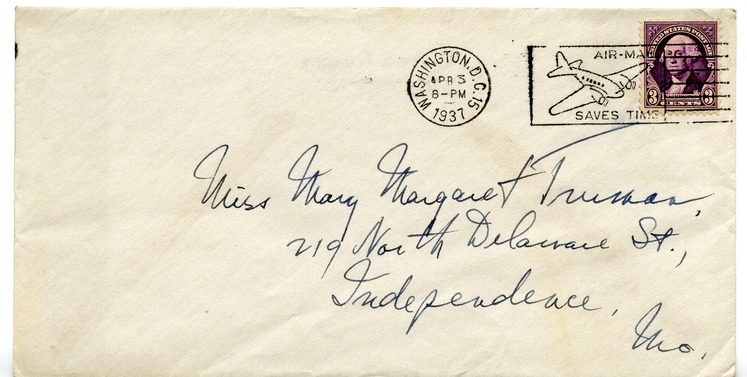 WASHINGTON, D.C. 15
APR 3
6-PM
1937
AIR-MA
SAVES TIME
UNITED STATES POSTAGE
3 CENTS 3
Miss Mary Margaret Truman,
219 North Delaware St.,
Independence,
Mo.